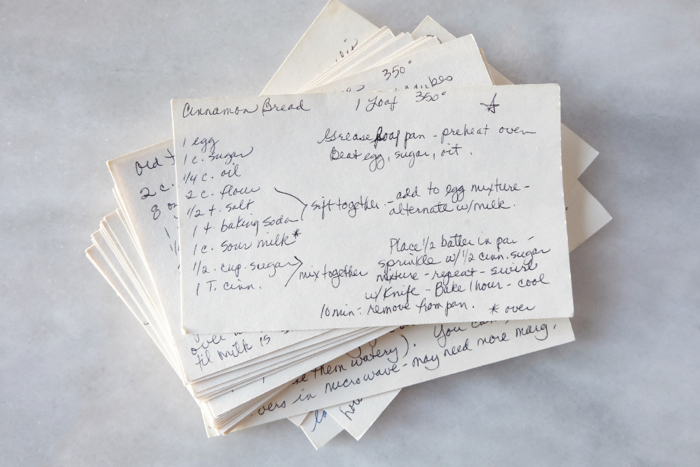 350°
Cinnamon Bread 1 Loaf 350°
1 egg
1 c. sugar
1/4 c. oil
2 c. flour
1/2 t. salt
1 t. baking soda
1 c. sour milk*
1/2 cup sugar
1 T. cinn.
Grease loaf pan - preheat oven
Beat egg, sugar, oil.
sift together - add to egg mixture -
alternate w/milk.
mix together
Place 1/2 batter in pan -
sprinkle w/ 1/2 cinn. sugar
mixture - repeat - swirl
w/Knife - Bake 1 hour - cool
10 min: remove from pan. * over
old
2 c.
8 oz
1
over
til milk is
them watery). You
in microwave - may need more marg.